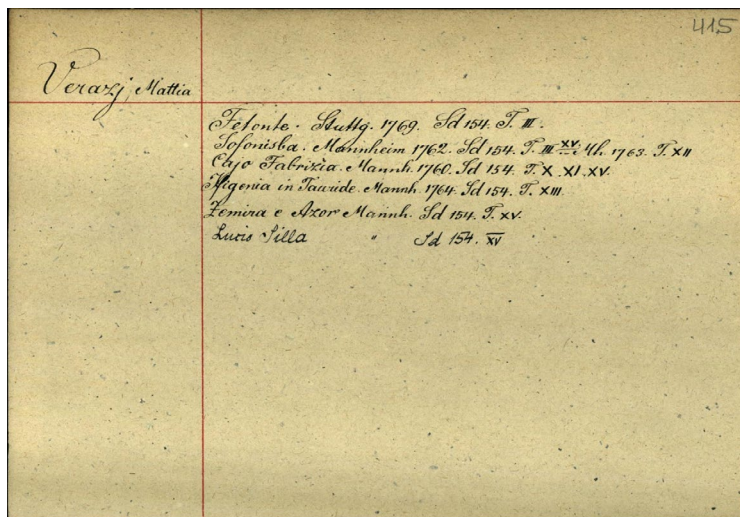 415
Verazj, Mattia
Fetonte. Stuttg. 1769. Sd 154. T. III.
Sofonisba. Mannheim 1762. Sd 154. T. III XV. Mh. 1763. T. XII
Cajo Fabrizia. Mannh. 1760. Sd 154. T. X. XI. XV.
Ifigenia in Tauride. Mannh. 1764. Sd 154. T. XIII.
Zemira e Azor Mannh. Sd 154. T. XV.
Lucio Silla " Sd 154. XV